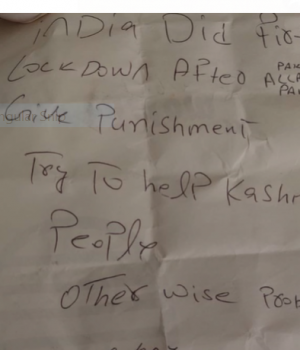 INDIA DID fir
LOCKDOWN After
Punishment
Try To help Kash
People
OTher wise Pro